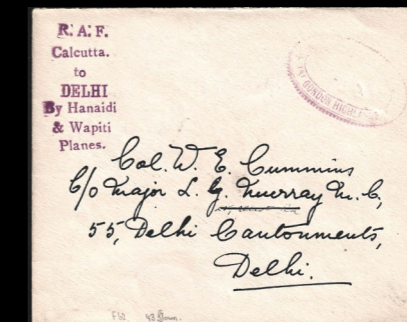 R. A. F.
Calcutta.
to
DELHI
By Hanaidi
& Wapiti
Planes.
GORDON HIGHL
Col. W. E. Cummins
C/o Major L. G. Murray M. C,
55, Delhi Cantonments,
Delhi.